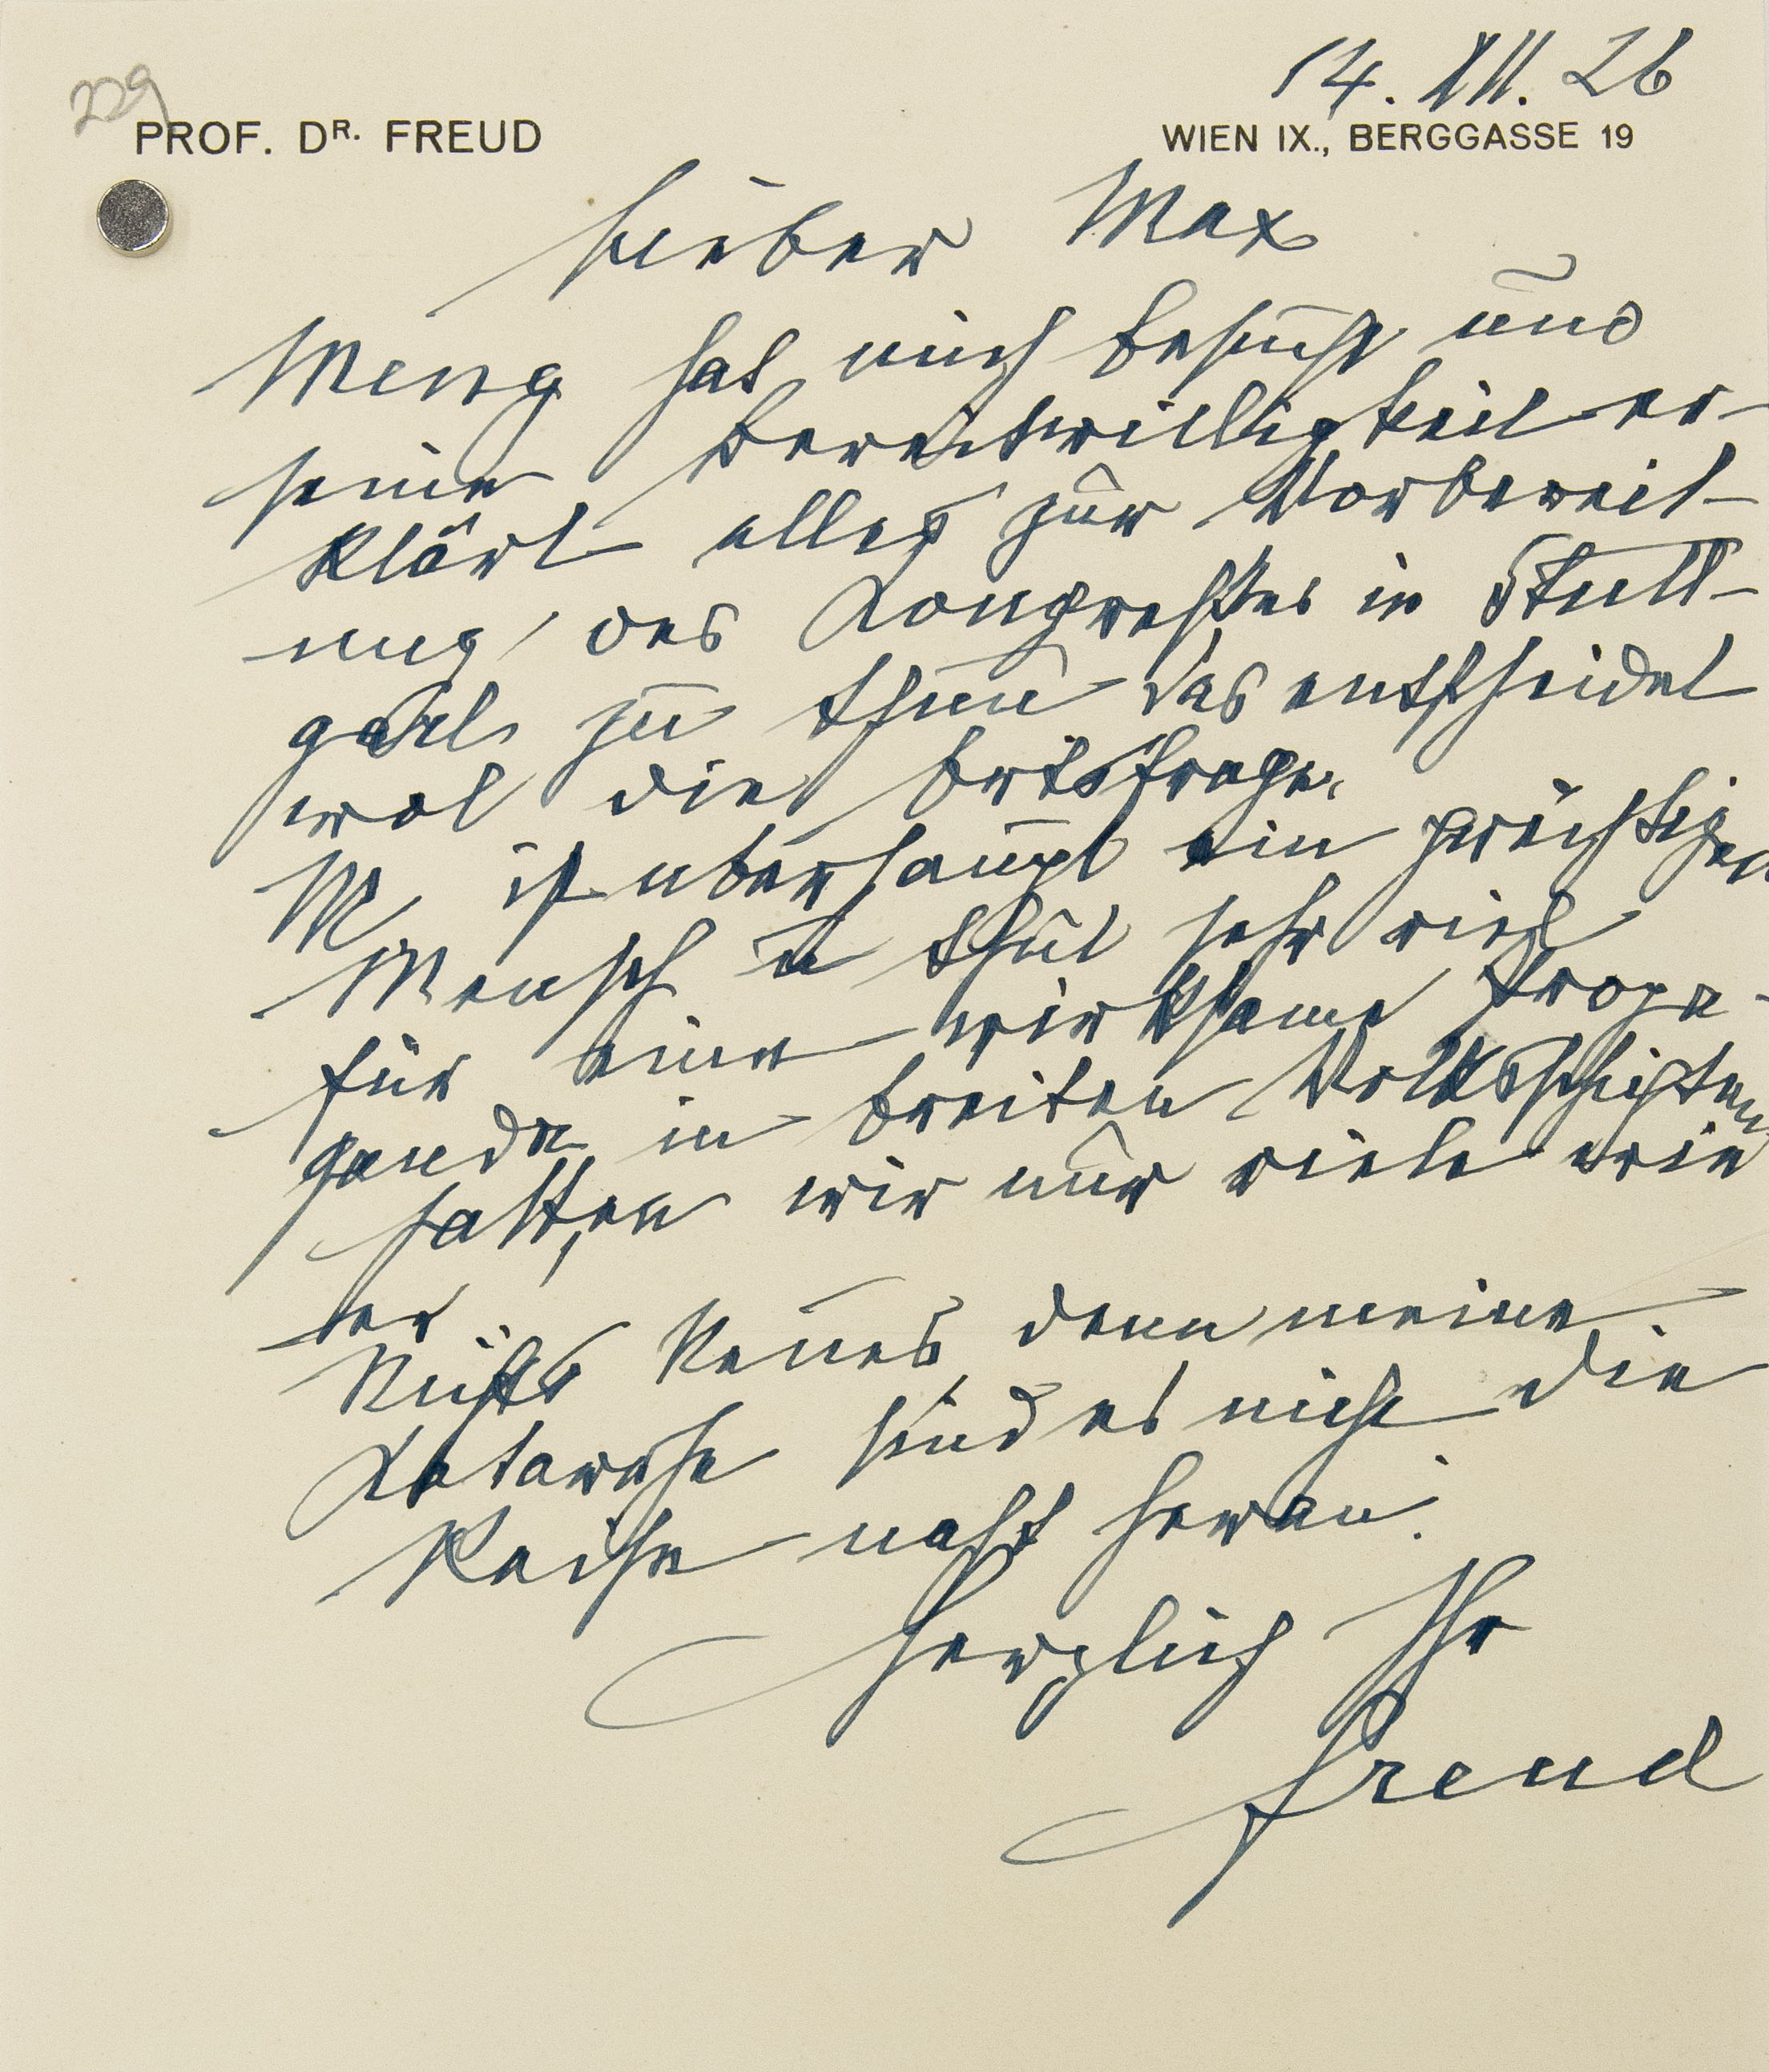 14.XII.26
229
PROF. DR. FREUD
WIEN IX., BERGGASSE 19
Lieber Max
Meng hat mich besucht und
seine Bereitwilligkeit er-
klärt alles zur Vorbereit-
ung des Kongresses in Stutt-
gart zu thun Das entscheidet
wol die Ortsfrage.
M. ist überhaupt ein prächtiger
Mensch u thut sehr viel
für eine wirksame Propa-
ganda in breiten Volksschichten
hätten wir nur viele wie
er
Nichts Neues denn meine
Katarrhe sind es nicht die
Reise naht heran.
Herzlich Ihr
Freud